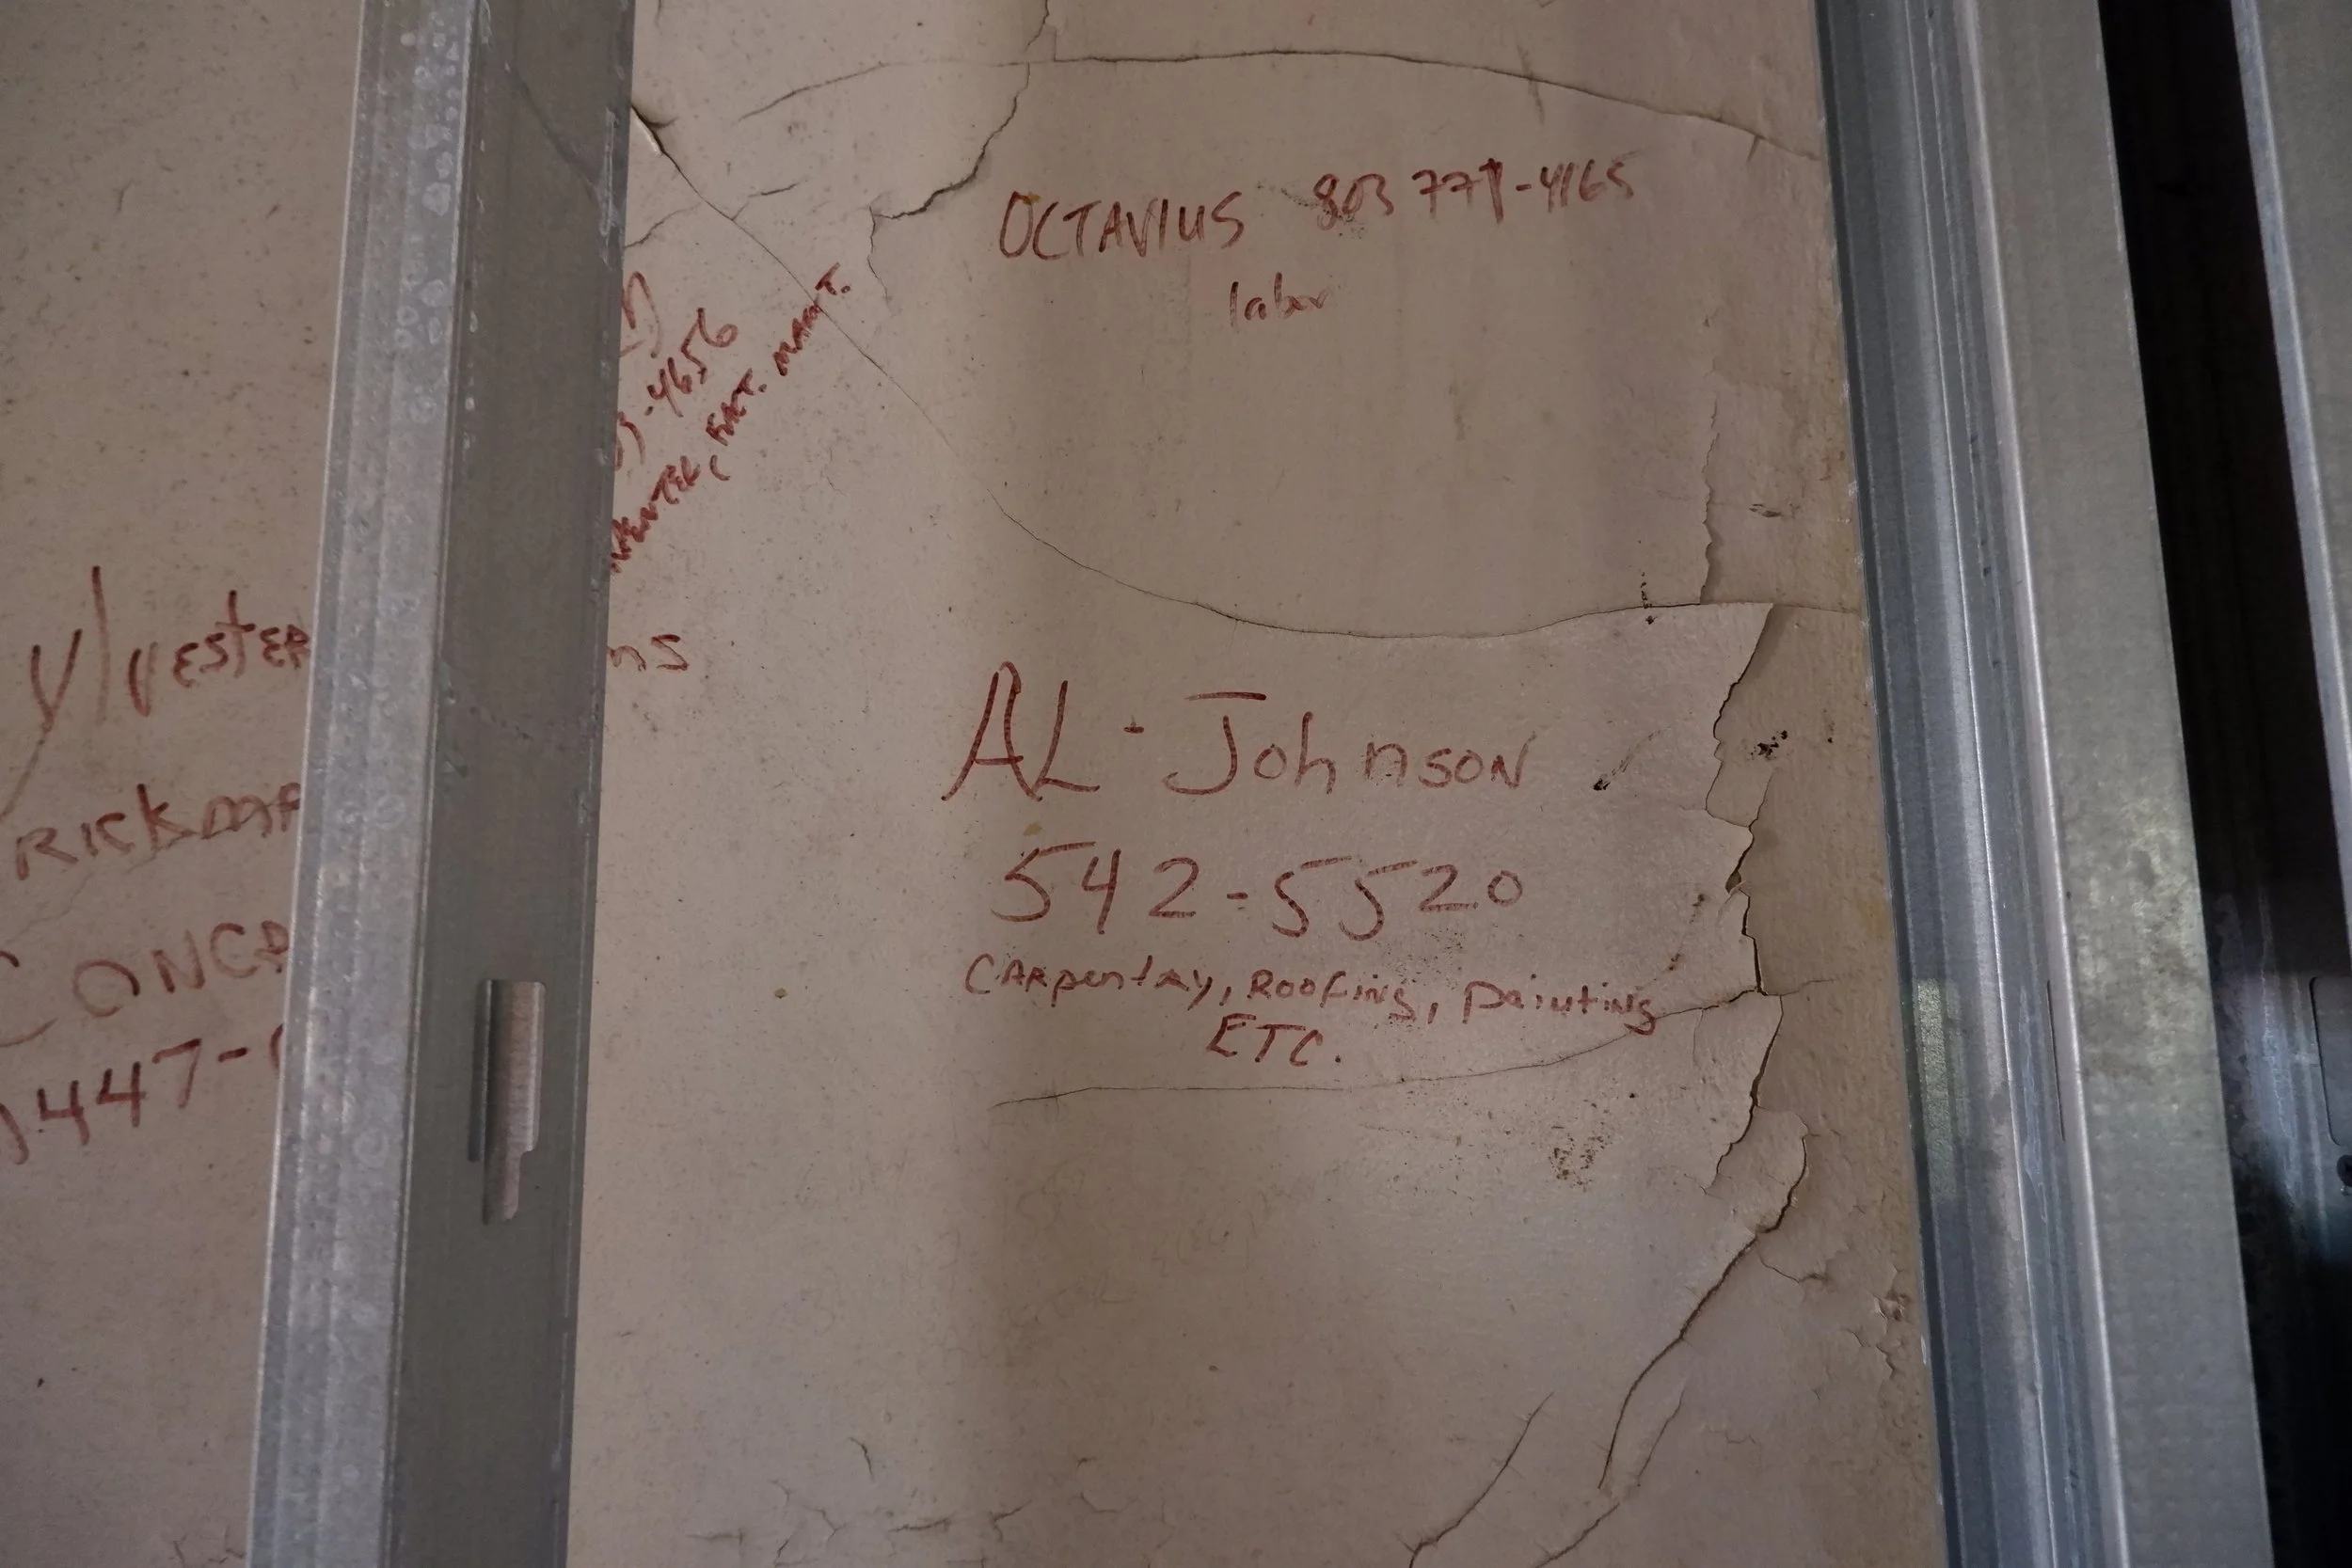 OCTAVIUS 803 771-4165
labor
-4656
, PAT. MAINT.
ylvester
RICK
CONCR
447-
ns
AL - Johnson
542-5520
CARpentRy, ROOFing, painting
ETC.